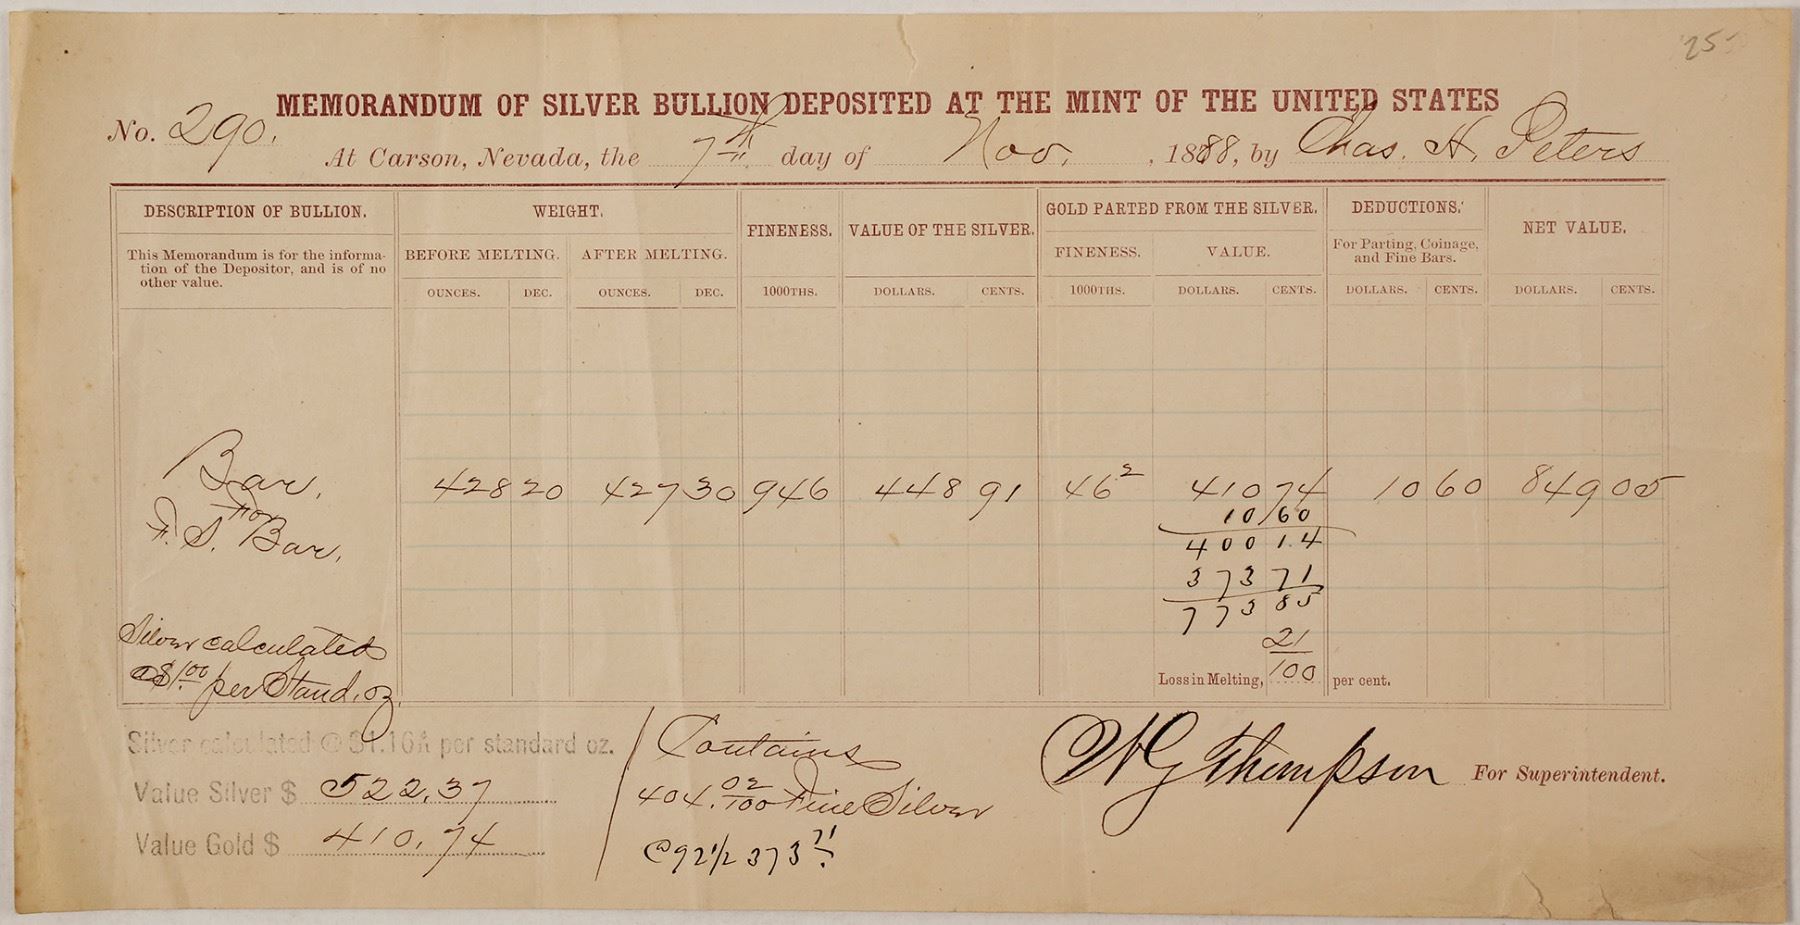 MEMORANDUM OF SILVER BULLION DEPOSITED AT THE MINT OF THE UNITED STATES
No. 290.
At Carson, Nevada, the 7th day of Nov., 1888, by Chas. H. Peters
DESCRIPTION OF BULLION. WEIGHT. FINENESS. VALUE OF THE SILVER. GOLD PARTED FROM THE SILVER. DEDUCTIONS. NET VALUE.
This Memorandum is for the informa-
tion of the Depositor, and is of no
other value.
BEFORE MELTING. AFTER MELTING. FINENESS. VALUE. For Parting, Coinage,
and Fine Bars.
OUNCES. DEC. OUNCES. DEC. 1000THS. DOLLARS. CENTS. 1000THS. DOLLARS. CENTS. DOLLARS. CENTS. DOLLARS. CENTS.
Bar. 428 20 427 30 946 448 91 46 2 410 74 10 60 849 05
10 60
Bar.
400 14
373 71
773 85
Silver calculated
@ $1.00 per Stand. oz.
Loss in Melting, 21/100 per cent.
Silver calculated @ $1.16 4/11 per standard oz.
Value Silver $ 522.37
Value Gold $ 410.74
Contains
404. 02/100 Fine Silver
@ 92 1/2 373 71
W G Thompson For Superintendent.